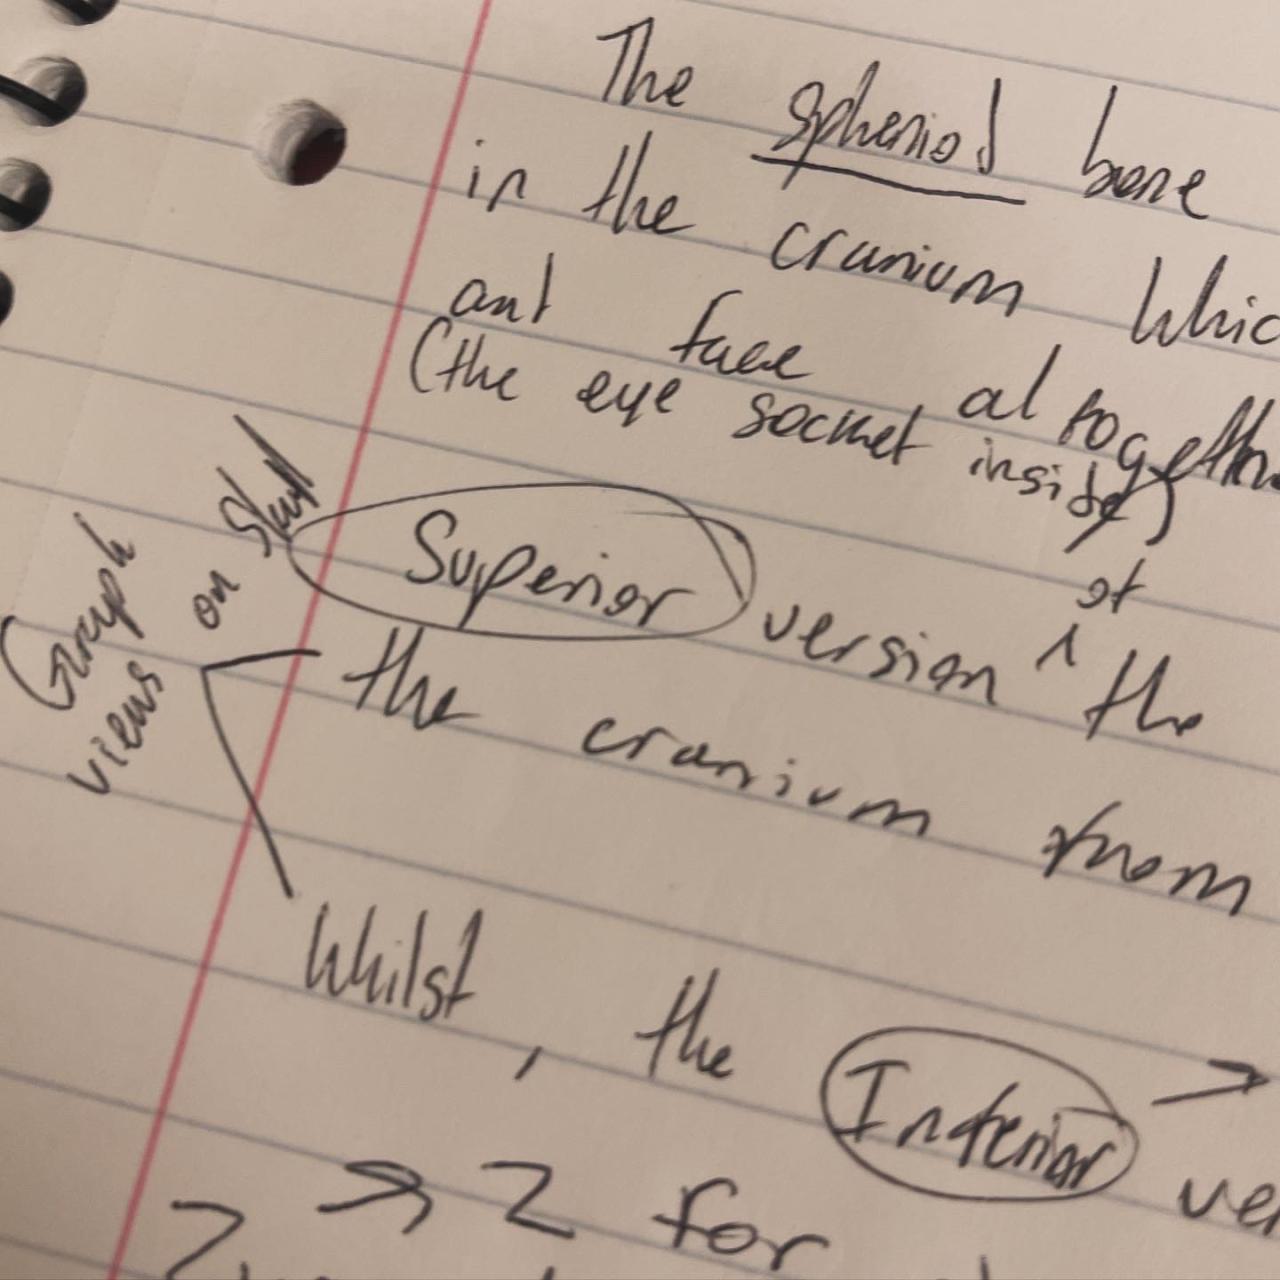 The spheniod bone
in the cranium Whic
and face altogether
(the eye socket inside)
Graph
views on Skull
Superior version of the
the cranium from
Whilst, the Inferior → ver
→ 2 for